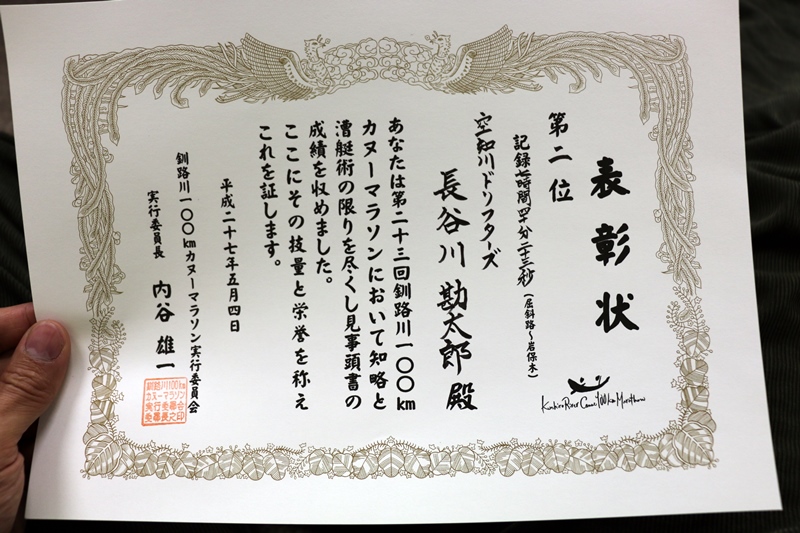 表彰状
第二位
記録七時間四十分二十三秒(屈斜路~岩保木)
空知川ドリフターズ
長谷川勘太郎殿
あなたは第二十三回釧路川一〇〇km
カヌーマラソンにおいて知略と
漕艇術の限りを尽くし見事頭書の
成績を収めました。
ここにその技量と栄誉を称え
これを証します。
平成二十七年五月四日
釧路川一〇〇kmカヌーマラソン実行委員会
実行委員長 内谷雄一
釧路川100km
カヌーマラソン
Kushiro River Canoe 100km Marathon